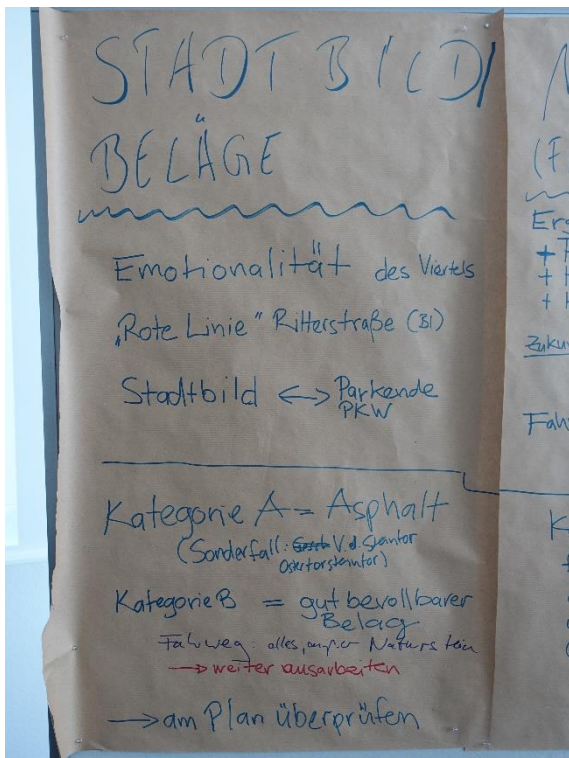 STADTBILD/
BELÄGE
Emotionalität des Viertels
„Rote Linie" Ritterstraße (BI)
Stadtbild <-> Parkende
PKW
Kategorie A = Asphalt
(Sonderfall: V. d. Steintor
Ostertorsteintor)
Kategorie B = gut berollbarer
Belag
Fahrweg: alles, außer Naturstein
→ weiter ausarbeiten
→ am Plan überprüfen
(F
Erg
+
+ H
+ H
Zuku
Fah
K